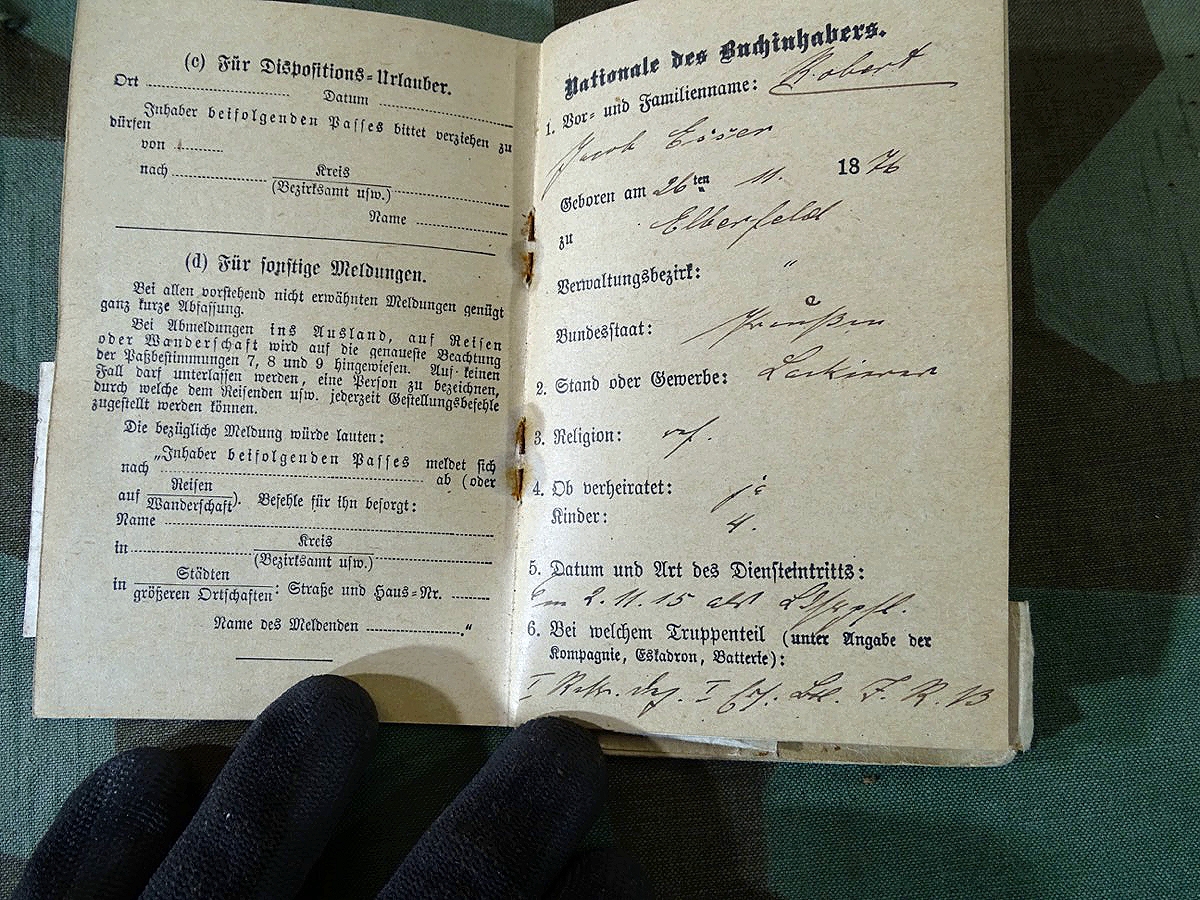 (c) Für Dispositions-Urlauber.
Ort
Datum
Inhaber beifolgenden Passes bittet verziehen zu
dürfen
von
nach
Kreis
(Bezirksamt usw.)
Name
(d) Für sonstige Meldungen.
Bei allen vorstehend nicht erwähnten Meldungen genügt
ganz kurze Abfassung.
Bei Abmeldungen ins Ausland, auf Reisen
oder Wanderschaft wird auf die genaueste Beachtung
der Paßbestimmungen 7, 8 und 9 hingewiesen. Auf keinen
Fall darf unterlassen werden, eine Person zu bezeichnen,
durch welche dem Reisenden usw. jederzeit Gestellungsbefehle
zugestellt werden können.
Die bezügliche Meldung würde lauten:
„Inhaber beifolgenden Passes meldet sich
nach ab (oder
Reisen
auf Wanderschaft). Befehle für ihn besorgt:
Name
Kreis
in (Bezirksamt usw.)
Städten
in größeren Ortschaften: Straße und Haus-Nr.
Name des Meldenden ."
Nationale des Buchinhabers.
1. Vor- und Familienname: Robert
Jacob Esser
Geboren am 26ten 11. 1876
zu Elberfeld
Verwaltungsbezirk: "
Bundesstaat: Preußen
2. Stand oder Gewerbe:
3. Religion: ref.
4. Ob verheiratet: ja
Kinder: 4.
5. Datum und Art des Diensteintritts:
2.11.15 als
6. Bei welchem Truppenteil (unter Angabe der
Kompagnie, Eskadron, Batterie):
I I